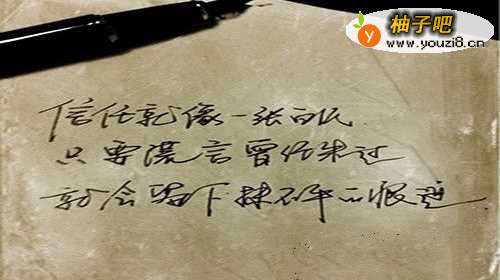 柚子吧
www.youzi8.cn
信任就像一张白纸
只要谎言曾经来过
就会留下抹不平的痕迹